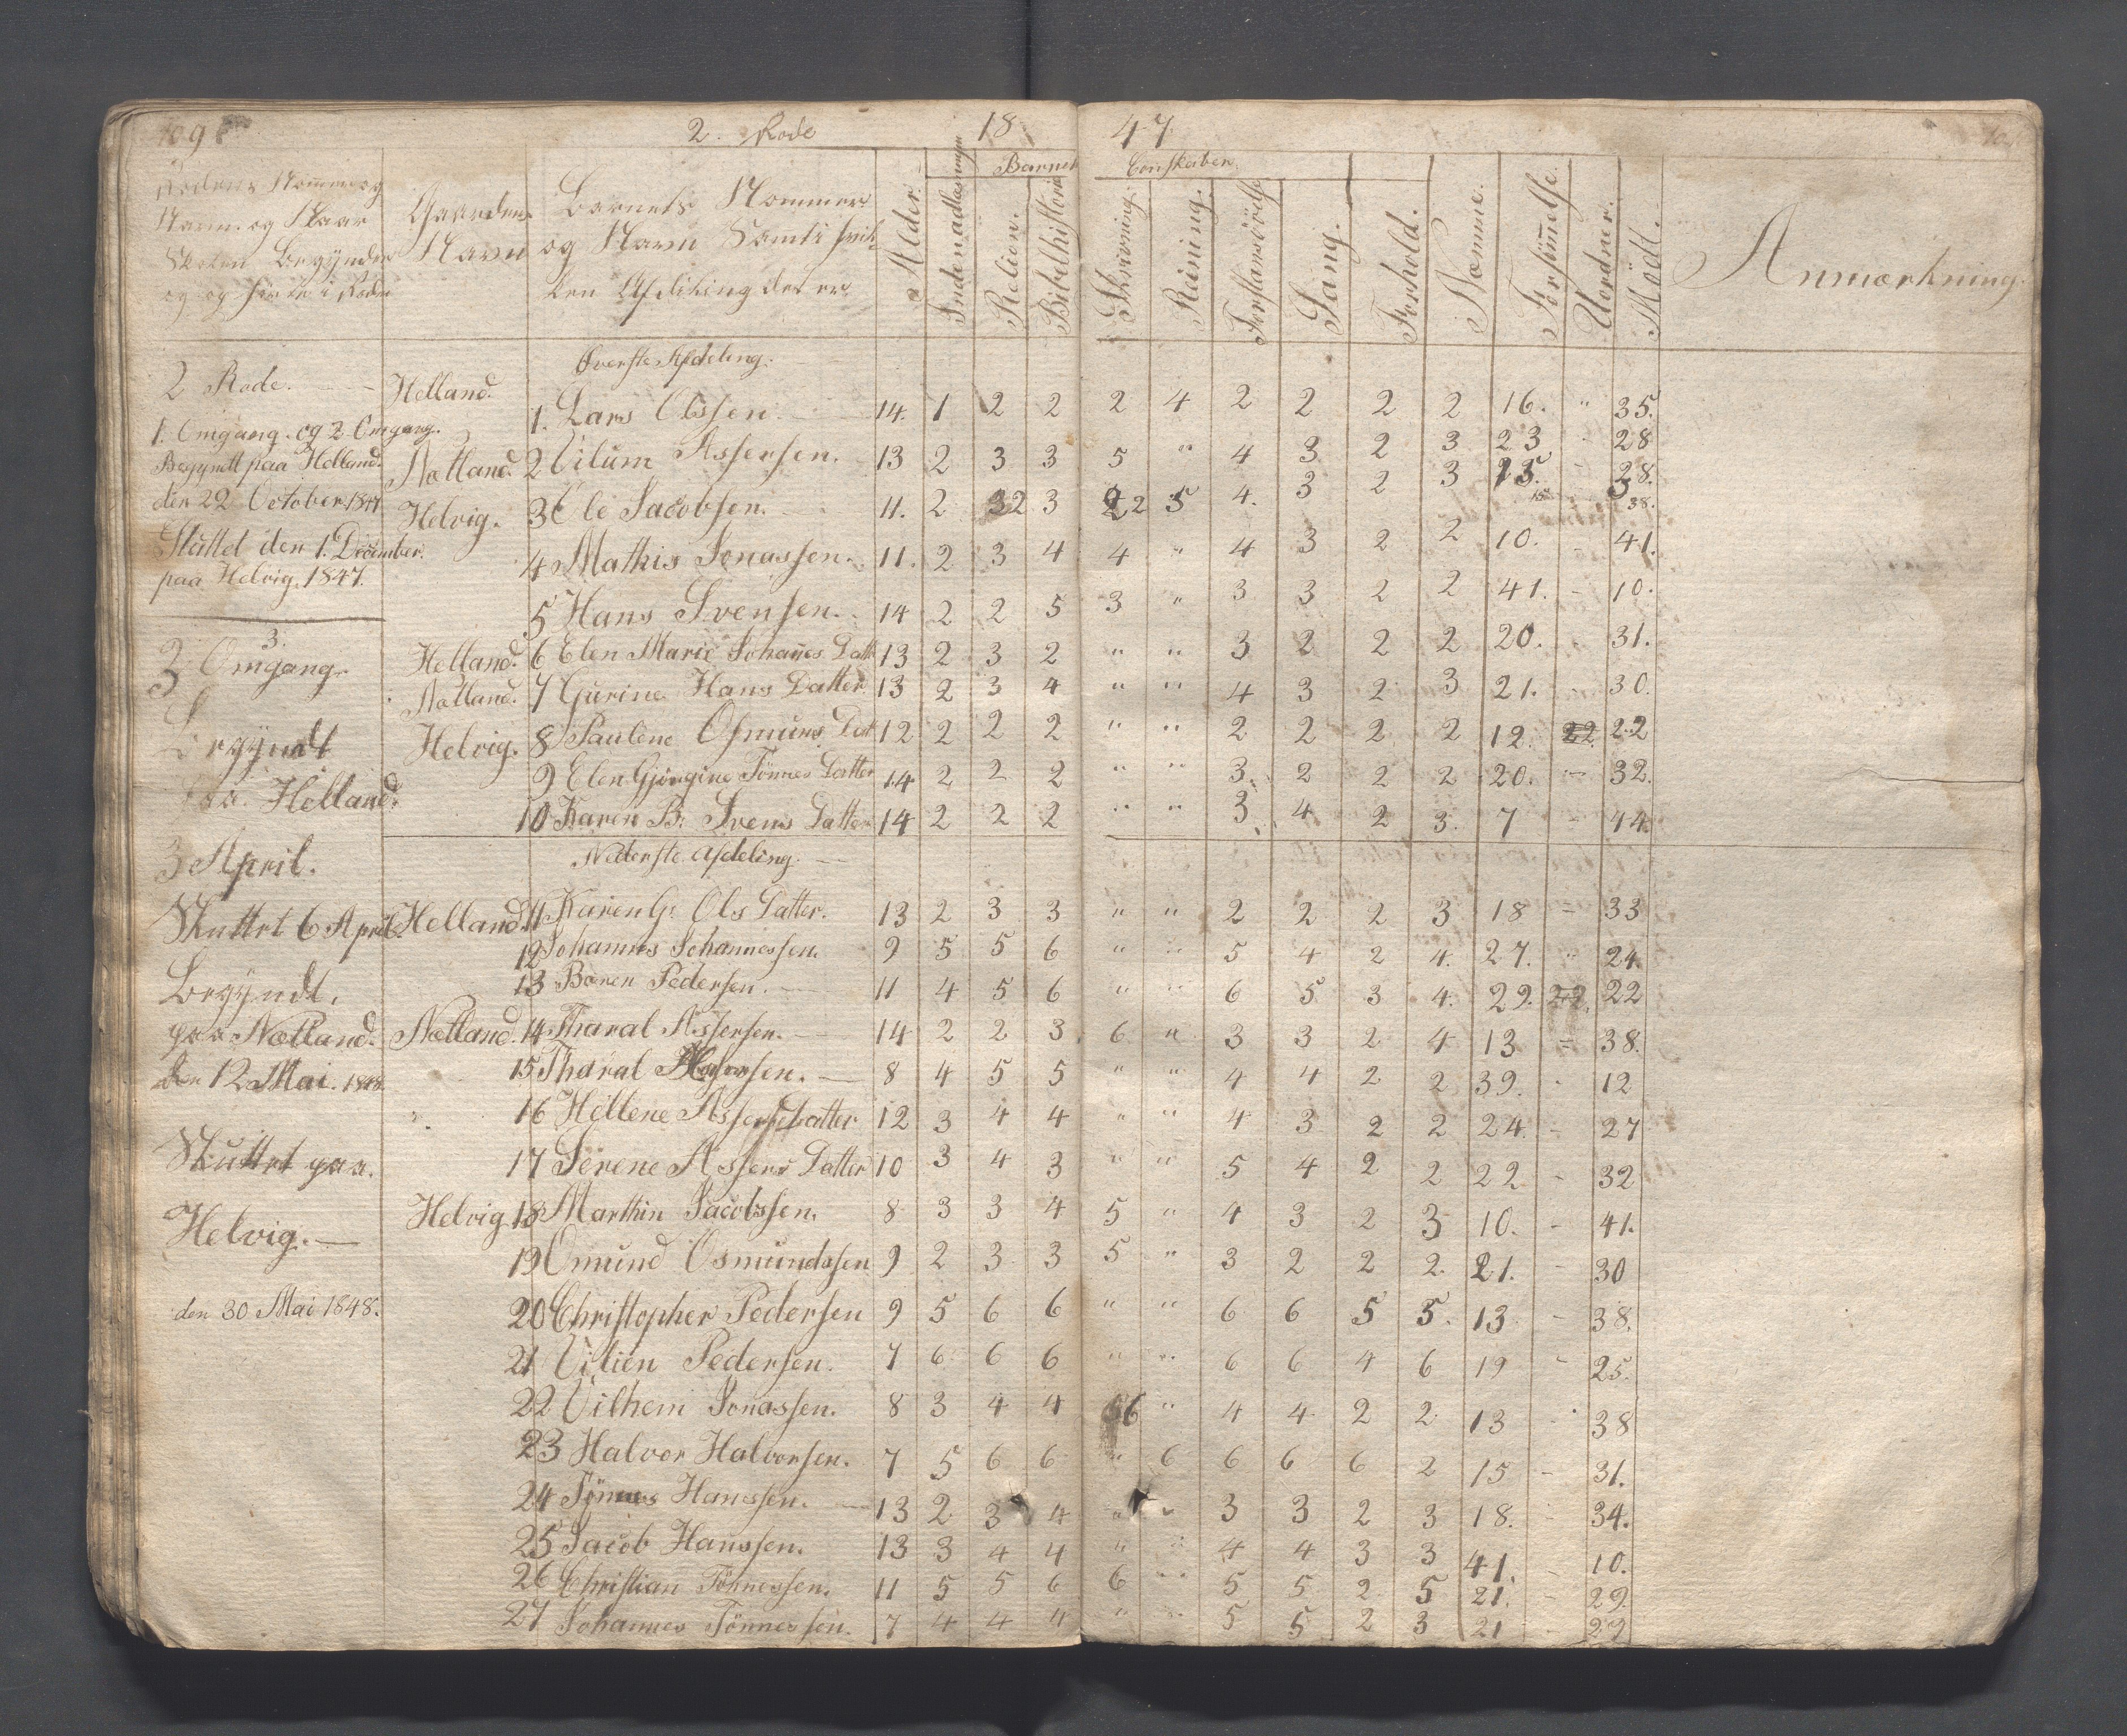 109
2. Rode 18 47
Barnets Konskaber.
Rodens Nommer og
Navn. og Naar
Skolen Begÿnder
Gaardens
Navn
Barnets Nommer
og Navn Samt i hvil-
ken Afdeling det er.
Alder. Indenadlæsning Relion. Bibelhistorie Skrivning. Reining. Forstansövelse Sang. Forhold. Næmme. Forsömelse. Uordner. Mödt. Anmærkning.
Øverste Afdeling.
2 Rode. Helland. 1. Lars Olssen. 14. 1 2 2 2 4 2 2 2 2 16. " 35.
1. Omgang. og 2 Omgang.
Begyndt paa Helland. Nætland. 2 Vilum Assersen. 13 2 3 3 5 " 4 3 2 3 23 - 28
den 22 October 1847 Helvig. 3 Ole Jacobsen. 11. 2 32 3 22 5 4. 3 2 3 15. - 38.
Sluttet den 1. December. 4 Mathis Jonassen. 11. 2 3 4 4 " 4 3 2 2 10. - 41.
paa Helvig. 1847.
5 Hans Svensen. 14 2 2 5 3 " 3 3 2 2 41. - 10.
3 Omgang. Helland. 6 Elen Marie Johañes Datt 13 2 3 2 " " 3 2 2 2 20. " 31.
Nætland. 7 Gurine Hans Datter 13 2 3 4 " " 4 3 2 3 21. - 30.
Begyndt Helvig. 8 Pauline Osmuns Dat 12 2 2 2 " " 2 2 2 2 12. 22 22
9 Elen Gjørgine Tönnes Datter 14 2 2 2 " " 3 2 2 2 20. - 32.
paa. Helland.
10 Karen B. Svens Datter 14 2 2 2 " " 3 4 2 3. 7 - 44.
Nederste Afdeling.
3 April.
Skuttet 6 April. Helland. 11 Karen G. Ols Datter. 13 2 3 3 " " 2 2 2 3 18 = 33
12 Johannes Johannessen. 9 5 5 6 " " 5 4 2 4. 27. " 24.
Begÿndt. 13 Bæren Pedersen. 11 4 5 6 " " 6 5 3 4. 29. 22. 22
paa Nætland. Nætland. 14 Tharal Assersen. 14 2 2 3 6 " 3 3 2 4 13 = 38.
den 12 Mai. 1848. 15 Tharal sen. 8 4 5 5 " " 4 4 2 2 39. - 12
16 Hellene Assers Datter 12 3 4 4 " " 4 3 2 2 24. - 27
Skuttet paa. 17 Serene Assers Datter 10 3 4 3 " " 5 4 2 2 22 - 32
Helvig. Helvig. 18 Marthin Jacobssen. 8 3 3 4 5 " 4 3 2 3 10. - 41.
19 Omund Osmundssen 9 2 3 3 5 " 3 2 2 2. 21. - 30
den 30 Mai 1848. 20 Christopher Pedersen 9 5 6 6 " " 6 6 5 5. 13 - 38.
21 Vilien Pedersen. 7 6 6 6 " " 6 6 4 6 19 - 25.
22 Vilhem Jonassen. 8 3 4 4 6 " 4 4 2 2 13 - 38
23 Halvor Halvorsen. 7 5 6 6 " 6 6 6 6 2 15 - 31.
24 Tönnes Hanssen. 13 2 3 4 " " 3 3 2 3 18. - 34.
25 Jacob Hanssen. 13 3 4 4 " " 4 4 3 3 41. - 10.
26 Christian Tönnessen. 11 5 5 6 6 " 5 5 2 5 21. - 29.
27 Johannes Tönnessen. 7 4 4 4 " " 5 5 2 3 21 - 29